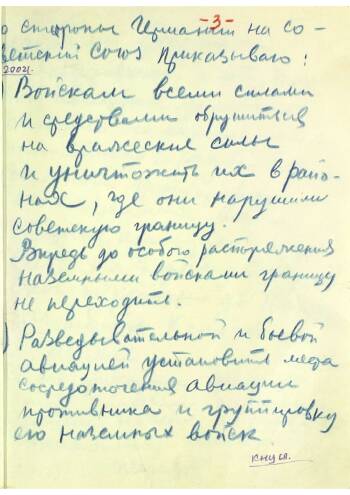 -3-
о стороны Германии на со-
ветский Союз приказываю:
Войскам всеми силами
и средствами обрушиться
на вражеские силы
и уничтожить их в райо-
нах, где они нарушили
советскую границу.
Впредь до особого распоряжения
наземными войсками границу
не переходить.
) Разведывательной и боевой
авиацией установить места
сосредоточения авиации
противника и группировку
его наземных войск